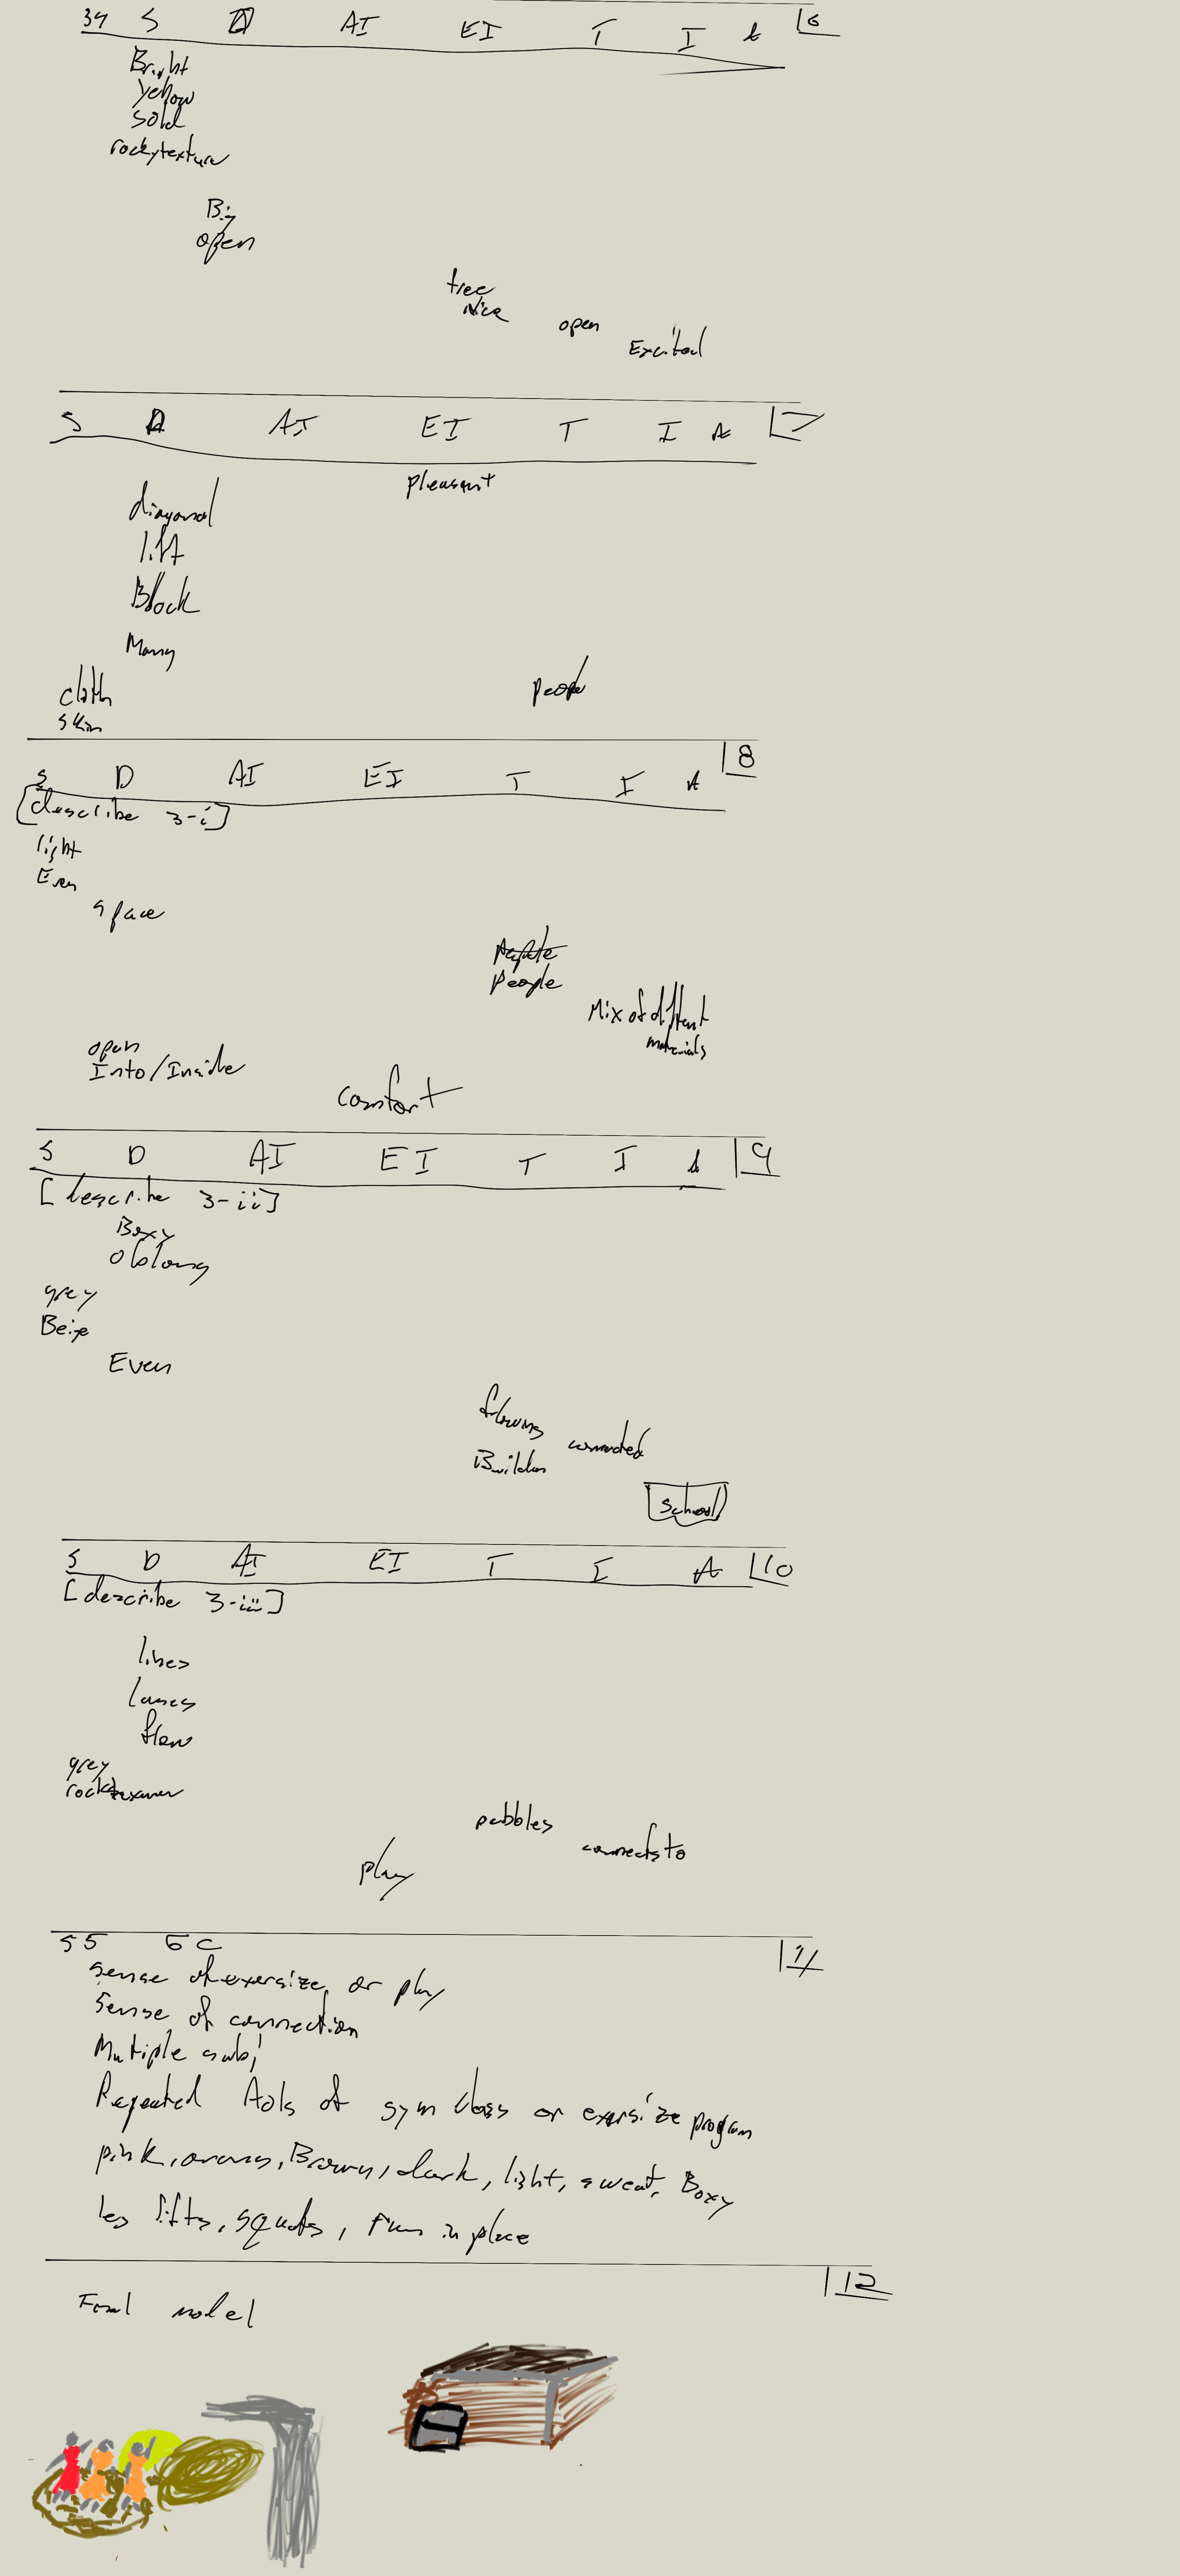 34 S D AI EI T I A 6
Bright
yellow
solid
rockytexture
Big
open
tree
nice
open
Excited
S D AI EI T I A 7
pleasant
diagonal
lift
Block
Many
people
cloth
skin
S D AI EI T I A 8
[describe 3-i]
light
Even
space
People
Mix of diffrent
materials
open
Into/Inside
comfort
S D AI EI T I A 9
[describe 3-ii]
Boxy
oblong
grey
Beige
Even
flowing
connected
Building
school
S D AI EI T I A 10
[describe 3-iii]
lines
lanes
flow
grey
pebbles
connects to
play
S5 6C 11
sense of exersize or play
Sense of connection
Mutiple subj
Repeated Aols of gym class or exersize program
pink, orang, Brown, dark, light, sweat, Boxy
leg lifts, squats, run in place
12
Final model